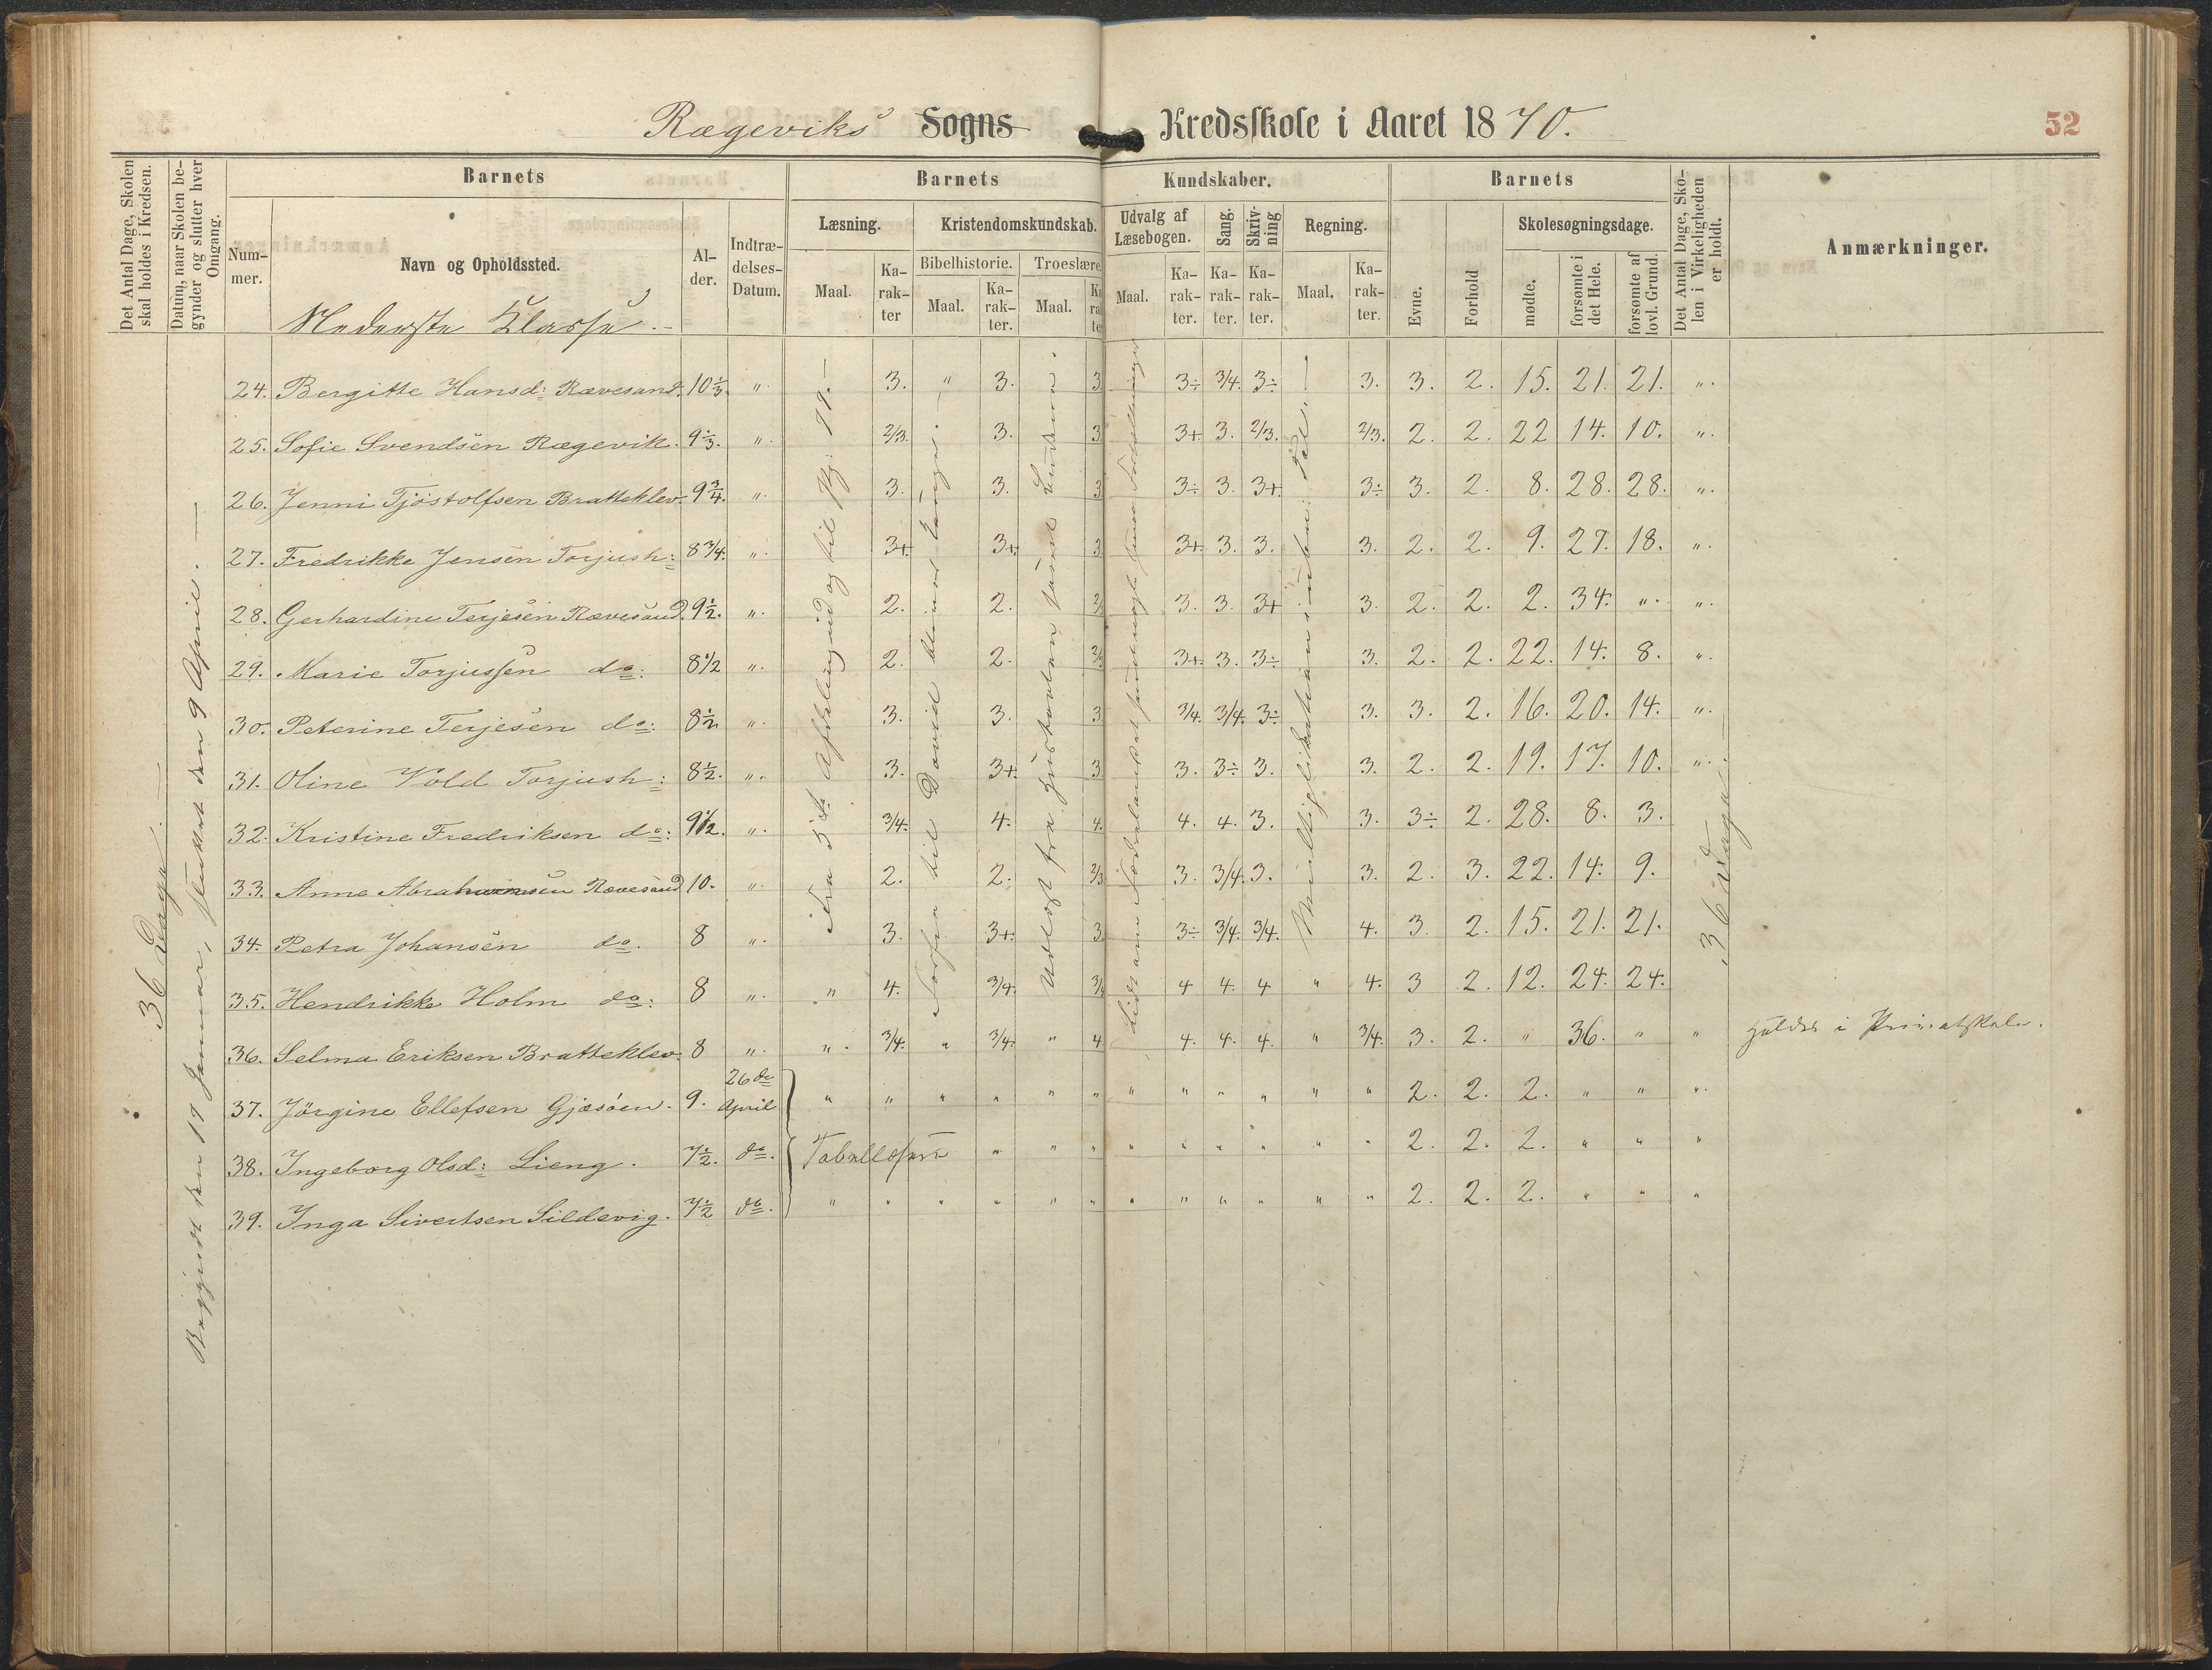 Rægeviks Sogns Kredsskole i Aaret 1870. 52
Det Antal Dage, Skolen skal holdes i Kredsen.
Datum, naar Skolen begynder og slutter hver Omgang.
Barnets
Nummer.
Navn og Opholdssted.
Alder.
Indtrædelses-Datum.
Barnets Kundskaber.
Læsning.
Maal. Karakter
Kristendomskundskab.
Bibelhistorie. Troeslære
Maal. Karakter. Maal. Karakter
Udvalg af Læsebogen.
Maal. Karakter.
Sang. Karakter.
Skrivning Karakter.
Regning.
Maal. Karakter.
Barnets
Evne. Forhold
Skolesøgningsdage.
mødte. forsømte i det Hele. forsømte af lovl. Grund.
Det Antal Dage, Skolen i Virkeligheden er holdt.
Anmærkninger.
Nederste Klasse.
36 Dage
Begyndt den 19 Januar, sluttet den 9 April.
Fra 3die Afdeling og til
til David
Udvalgt fra
Multiplikation
36 Dage
24. Bergitte Hansd: Rævesand. 10 1/3. " 3. " 3. 3 3÷ 3/4. 3÷ 3. 3. 2. 15. 21. 21. "
25. Sofie Svendsen Rægevik. 9 1/3. " 2/3. 3. 3 3+. 3. 2/3. 2/3. 2. 2. 22 14. 10. "
26. Jenni Tjøstolfsen Bratteklev. 9 3/4. " 3. 3. 3 3÷ 3. 3+. 3÷ 3. 2. 8. 28. 28. "
27. Fredrikke Jensen Torjush: 8 3/4. " 3+ 3+ 3 3+. 3. 3. 3. 2. 2. 9. 27. 18. "
28. Gerhardine Terjesen Rævesand. 9 1/2. " 2. 2. 2/3 3. 3. 3+ 3. 2. 2. 2. 34. " "
29. Marie Torjussen do: 8 1/2 " 2. 2. 2/3 3+. 3. 3÷ 3. 2. 2. 22. 14. 8. "
30. Peterine Terjesen do: 8 1/2 " 3. 3. 3 3/4. 3/4. 3÷ 3. 3. 2. 16. 20. 14. "
31. Oline Vold Torjush: 8 1/2. " 3. 3+. 3 3. 3÷ 3. 3. 2. 2. 19. 17. 10. "
32. Kristine Fredriksen do: 9 1/2. " 3/4. 4. 4. 4. 4. 3. 3. 3÷ 2. 28. 8. 3.
33. Anne Abrahamsen Rævesand 10. " 2. 2. 2/3 3. 3/4. 3. 3. 2. 3. 22. 14. 9.
34. Petra Johansen do. 8 " 3. 3+. 3. 3÷ 3/4. 3/4. 4. 3. 2. 15. 21. 21.
35. Hendrikke Holm do: 8 " " 4. 3/4. 3/4 4 4. 4 " 4. 3 2. 12. 24. 24.
36. Selma Eriksen Bratteklev. 8 " " 3/4. " 3/4. " 4 4. 4. 4. " 3/4. 3. 2. " 36. " " i Privatskole.
37. Jørgine Ellefsen Gjæsøen. 9. 26de April " " " " " " " " " " " " 2. 2. 2. " " "
38. Ingeborg Olsd: Lieng. 7 1/2. do. " " " " " " " " " 2. 2. 2. " " "
39. Inga Sivertsen Sildevig. 7 1/2 do. " " " " " " " " " " " " 2. 2. 2. " " "